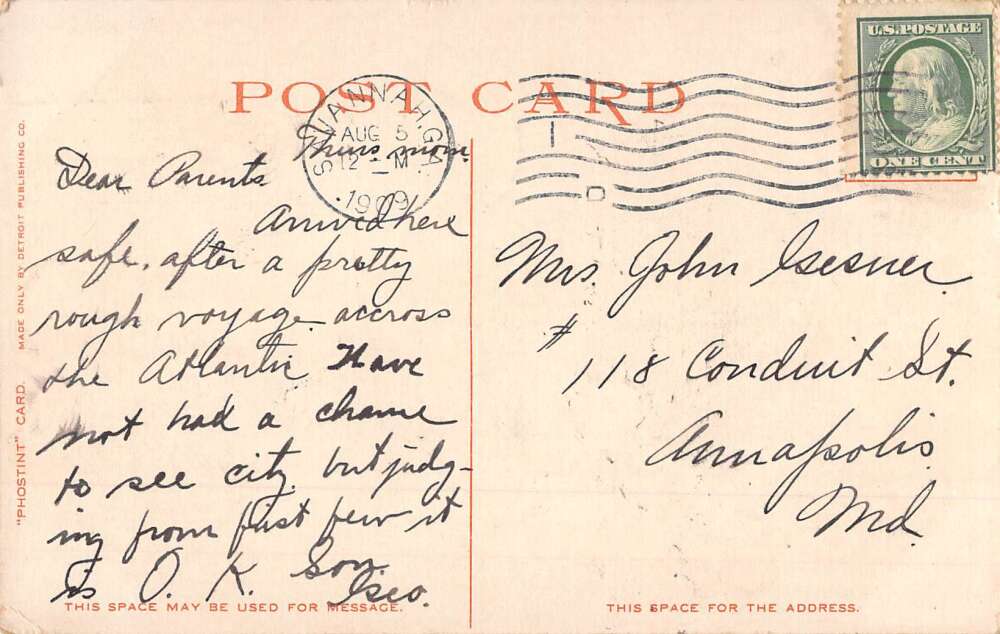 POST CARD
U.S. POSTAGE
ONE CENT
SAVANNAH, GA.
AUG 5
12 - M
1909
Thurs morn.
Dear Parents.
Arrived here
safe, after a pretty
rough voyage accross
the Atlantic Have
not had a chance
to see city but judg-
ing from first few it
is O. K. Son
Geo.
THIS SPACE MAY BE USED FOR MESSAGE.
Mrs. John Gesner
# 118 Conduit St.
Annapolis
Md.
THIS SPACE FOR THE ADDRESS.
"PHOSTINT" CARD. MADE ONLY BY DETROIT PUBLISHING CO.